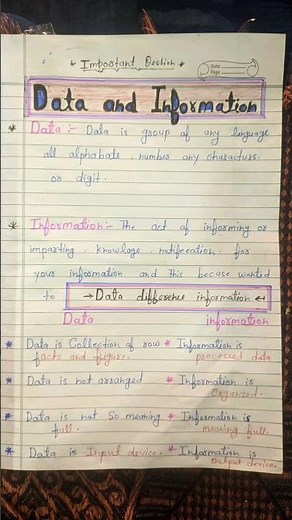 * Important Qestion *
Date
Page
Data and Information
* Data :- Data is group of any language
all alphabats . number any characturs.
or digit.
* Information:- The act of informing or
imparting . knowloge . notifecation . for
your information and this becase wanted
to → Data difference information ↔
Data information
* Data is Collection of row * Information is
facts and figure. processed data
* Data is not arranged * Information is
Organized.
* Data is not So meaning * Information is
full. meaning full.
* Data is Input device. * Information is
output device.